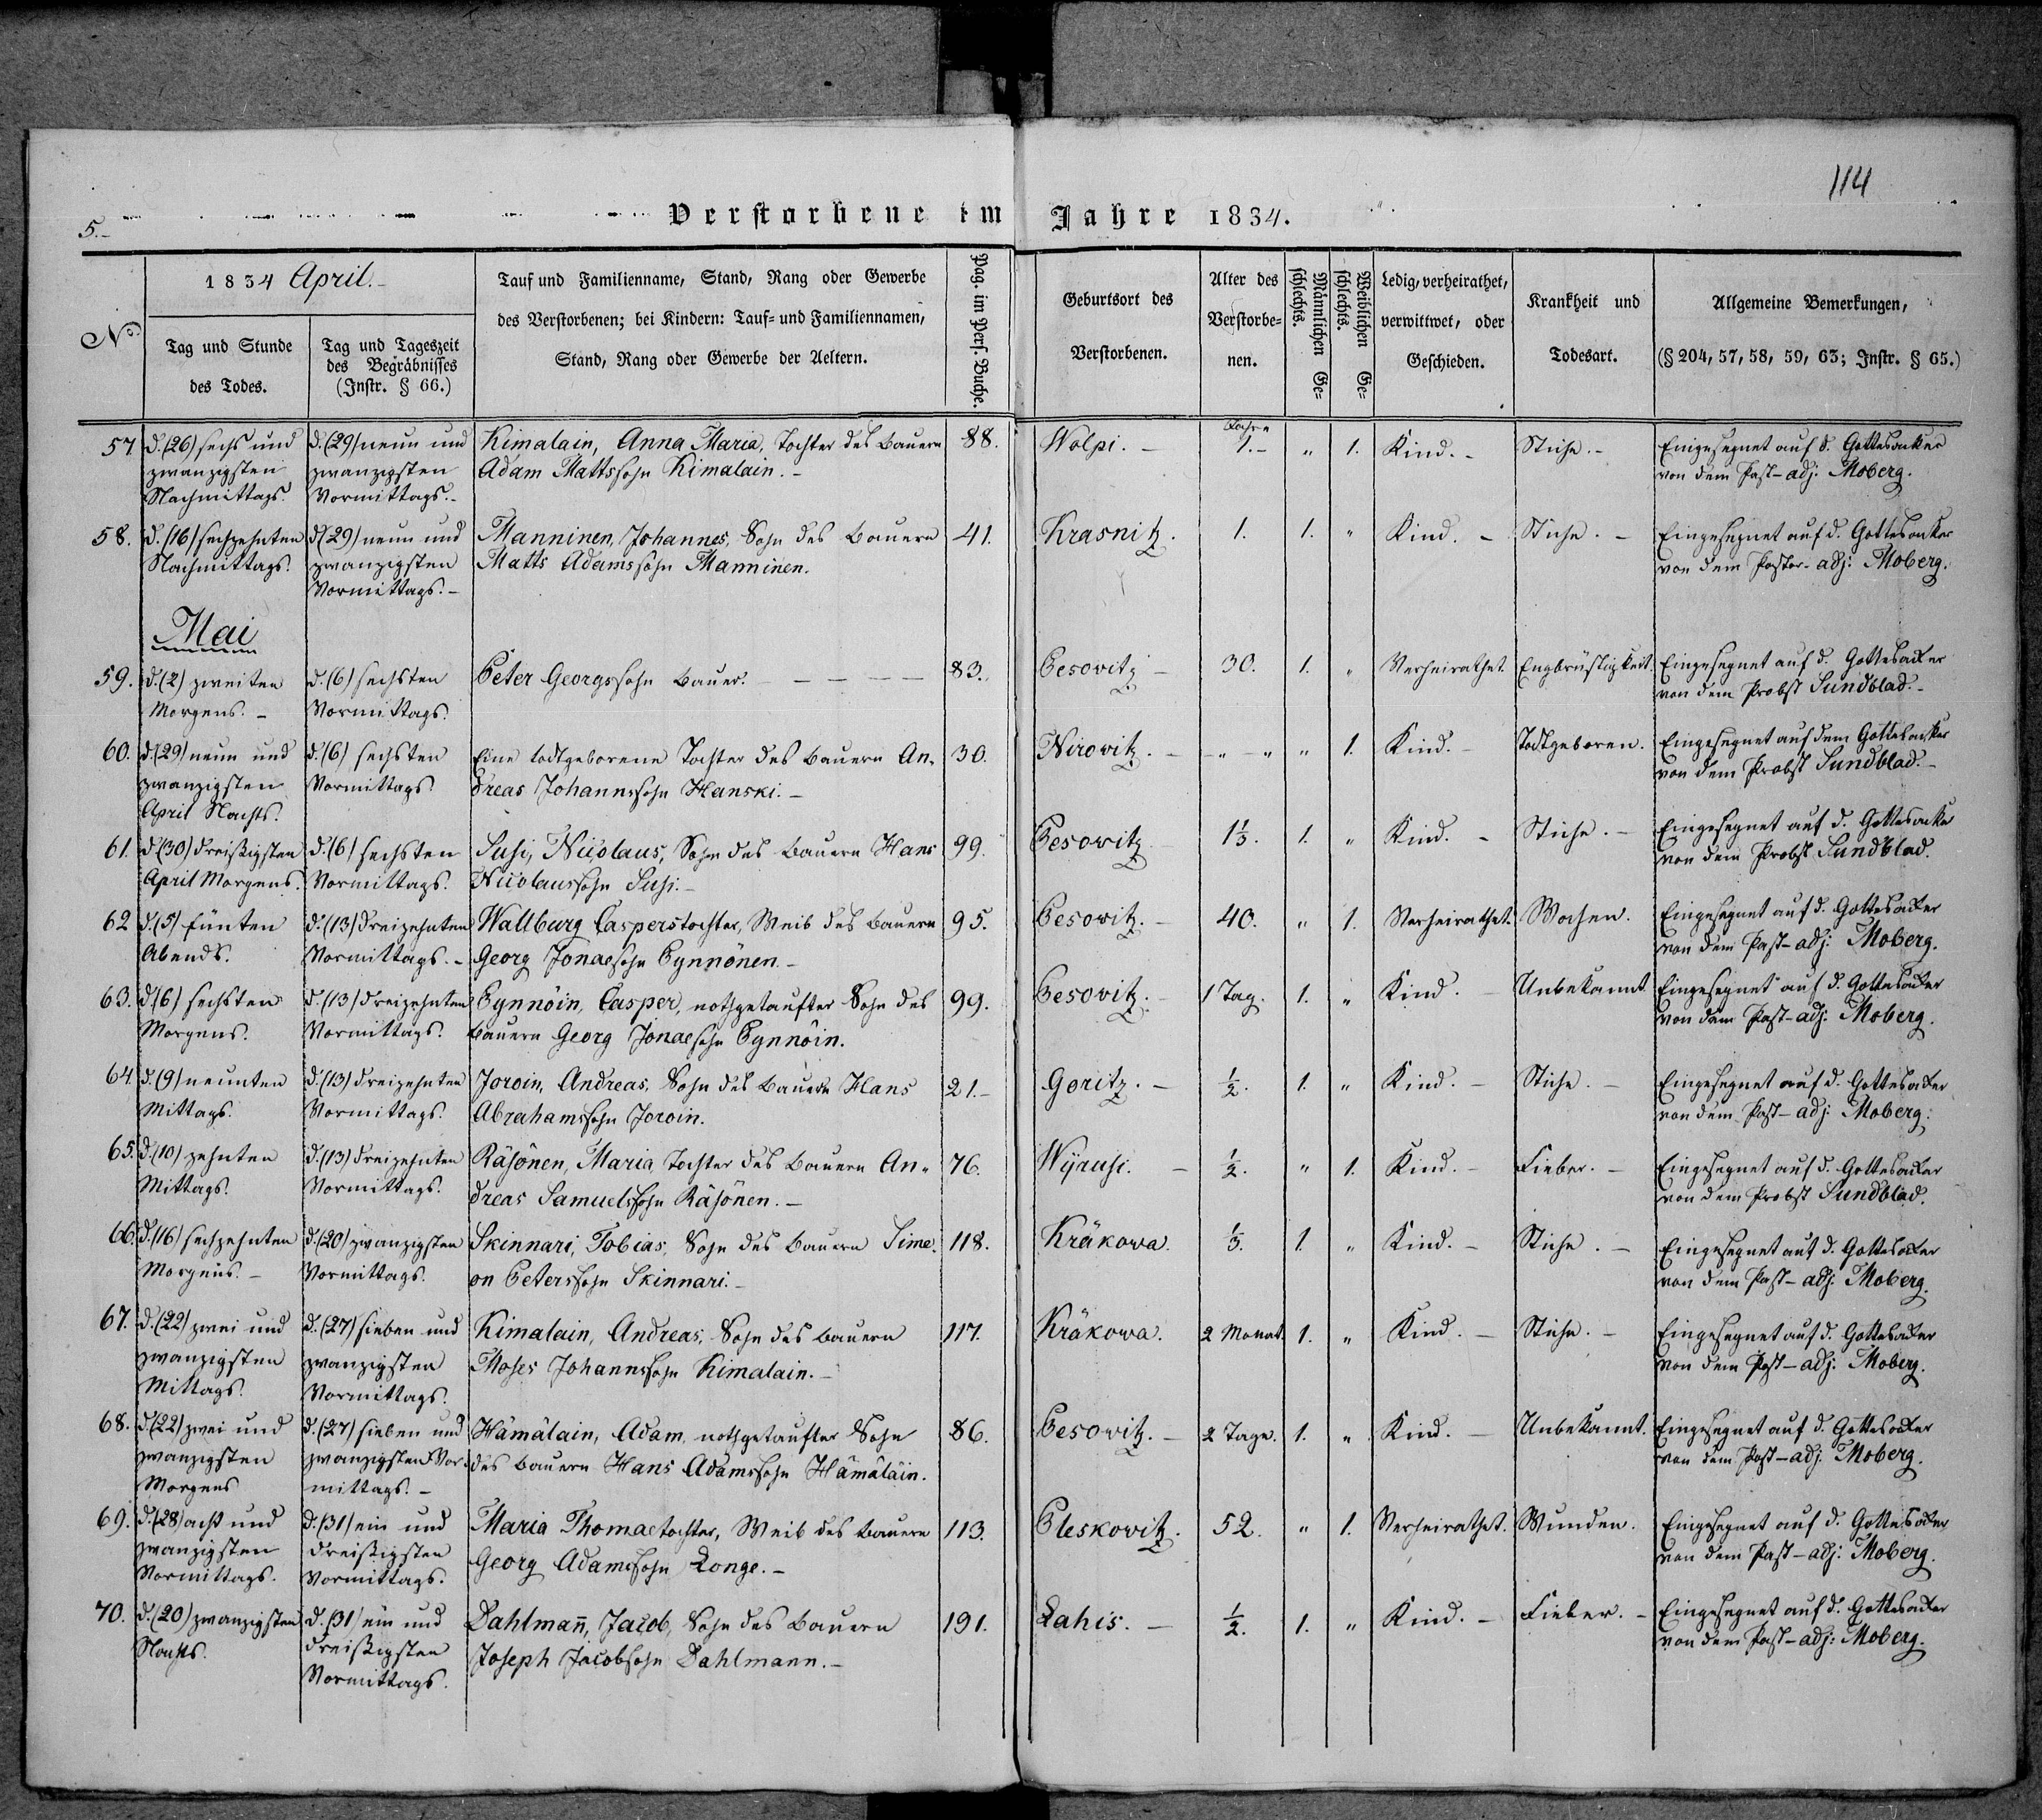 114
5.
Verstorbene im Jahre 1834.
No
1834 April.
Tag und Stunde
des Todes.
Tag und Tageszeit
des Begräbnisses
(Instr. § 66.)
Tauf und Familienname, Stand, Rang oder Gewerbe
des Verstorbenen; bei Kindern: Tauf- und Familiennamen,
Stand, Rang oder Gewerbe der Aeltern.
Pag. im Pers. Buche.
Geburtsort des
Verstorbenen.
Alter des
Verstorbe-
nen.
Männlichen Ge-
schlechts.
Weiblichen Ge-
schlechts.
Ledig, verheirathet,
verwittwet, oder
Geschieden.
Krankheit und
Todesart.
Allgemeine Bemerkungen,
(§ 204, 57, 58, 59, 63; Instr. § 65.)
Jahre
57 d. (26) sechs und d. (29) neun und Kimalain, Anna Maria, Tochter des Bauern 88. Wolpi. - 1.- " 1. Kind. - Stiche. - Eingesegnet auf d. Gottesacker
zwanzigsten zwanzigsten Adam Mattssohn Kimalain. - von dem Past-adj: Moberg.
Nachmittags. Vormittags. -
58. d. (16) sechzehnten d. (29) neun und Manninen, Johannes, Sohn des Bauern 41. Krasnitz. 1. 1. " Kind. - Stiche. - Eingesegnet auf d. Gottesacker
Nachmittags. zwanzigsten Matts Adamssohn Manninen. von dem Pastor-adj: Moberg.
Vormittags. -
Mai
59. d. (2) zweiten d. (6) sechsten Peter Georgssohn Bauer. - - - - 83. Pesovitz - 30. 1. " Verheirathet Engbrüstigkeit. Eingesegnet auf d. Gottesacker
Morgens. - Vormittags. von dem Probst Sundblad. -
60. d. (29) neun und d. (6) sechsten Eine todtgeborene Tochter des Bauern An- 30. Nirowitz. - " " " 1. Kind. - Todtgeboren. Eingesegnet auf dem Gottesacker
zwanzigsten Vormittags dreas Johannssohn Hanski. - von dem Probst Sundblad. -
April Nachts.
61. d. (30) dreißigsten d. (6) sechsten Susi, Nicolaus, Sohn des Bauern Hans 99. Pesowitz 1⅓. 1. " Kind. - Stiche. - Eingesegnet auf d. Gottesacke
April Morgens. Vormittags. Nicolaussohn Susi. - von dem Probst Sundblad.
62 d. (5) fünten d. (13) dreizehnten Wallburg Casperstochter, Weib des Bauern 95. Pesowitz. - 40. " 1. Verheirathet. Wochen. Eingesegnet auf d. Gottesacker
Abends. Vormittags. - Georg Jonaesohn Pynnönen. - von dem Past-adj: Moberg.
63. d. (6) sechsten d. (13) dreizehnten Pynnöin, Casper, nothgetaufter Sohn des 99. Pesovitz. - 1 Tag. 1. " Kind. - Unbekannt Eingesegnet auf d. Gottesacker
Morgens. Vormittags. Bauern Georg Jonaesohn Pynnöin. von dem Past-adj: Moberg.
64. d. (9) neunten d. (13) dreizehnten Joroin, Andreas, Sohn des Bauern Hans 21. - Goritz. - ½. 1. " Kind. - Stiche. - Eingesegnet auf d. Gottesacker
Mittags. Vormittags. Abrahamssohn Joroin. von dem Past-adj: Moberg.
65. d. (10) zehnten d. (13) dreizehnten Räsönen, Maria, Tochter des Bauern An- 76. Wyrusi. - ½. " 1. Kind. - Fieber. - Eingesegnet auf d. Gottesacker
Mittags. Vormittags. dreas Samuelssohn Räsönen. - von dem Probst Sundblad.
66. d. (16) sechzehnten d. (20) zwanzigsten Skinnari, Tobias, Sohn des Bauern Sime- 118. Kräkowa. ⅓. 1. " Kind. - Stiche. - Eingesegnet auf d. Gottesacker
Morgens. - Vormittags. on Peterssohn Skinnari. - von dem Past-adj: Moberg.
67. d. (22) zwei und d. (27) sieben und Kimalain, Andreas, Sohn des Bauern 117. Kräkowa. 2 Monat. 1. " Kind. - Stiche. - Eingesegnet auf d. Gottesacker
zwanzigsten zwanzigsten Moses Johannssohn Kimalain. - von dem Past-adj: Moberg.
Mittags. Vormittags.
68. d. (22) zwei und d. (27) sieben und Hämäläin, Adam, nothgetaufter Sohn 86. Pesowitz. - 2 Tage. 1. " Kind. - Unbekannt. Eingesegnet auf d. Gottesacker
zwanzigsten zwanzigsten Vor- des Bauern Hans Adamssohn Hämäläin. von dem Past-adj: Moberg.
Morgens mittags. -
69. d. (28) acht und d. (31) ein und Maria Thomaetochter, Weib des Bauern 113. Pleskowitz. 52. " 1. Verheirathet. Wunden. Eingesegnet auf d. Gottesacker
zwanzigsten dreißigsten Georg Adamssohn Longe. - von dem Past-adj: Moberg.
Vormittags. Vormittags.
70. d. (20) zwanzigsten d. (31) ein und Dahlmañ, Jacob, Sohn des Bauern 191. Lahis. - ½. 1. " Kind. - Fieber. - Eingesegnet auf d. Gottesacker
Nachts. dreißigsten Joseph Jacobsohn Dahlmann. - von dem Past-adj: Moberg.
Vormittags.